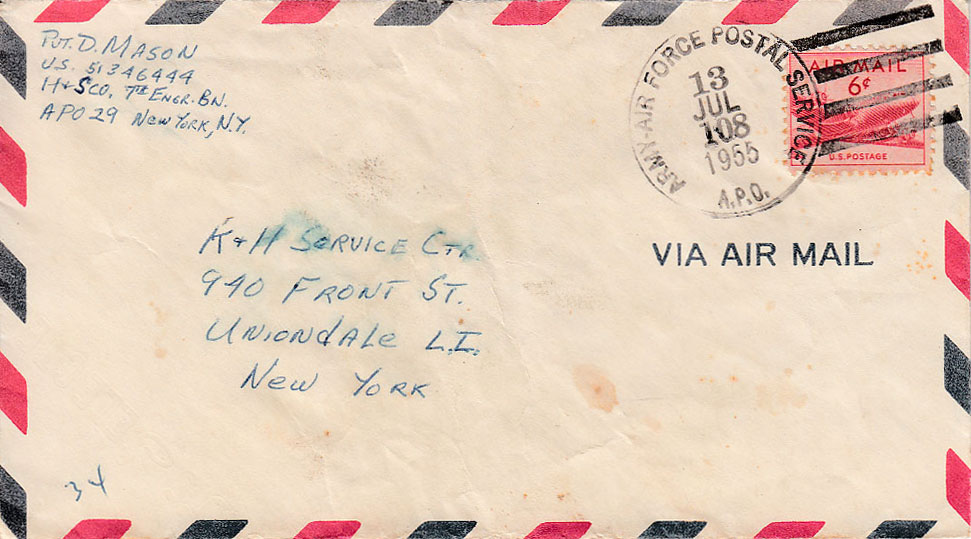 Pvt. D. MASON
U.S. 51346444
H+SCO. 7TH ENGR. BN.
APO 29 NEW YORK, N.Y.
ARMY-AIR FORCE POSTAL SERVICE
13
JUL
108
1955
A.P.O.
AIR MAIL
6¢
U.S. POSTAGE
VIA AIR MAIL
K+H SERVICE CTR.
940 FRONT ST.
UNIONDALE L.I.
NEW YORK
34